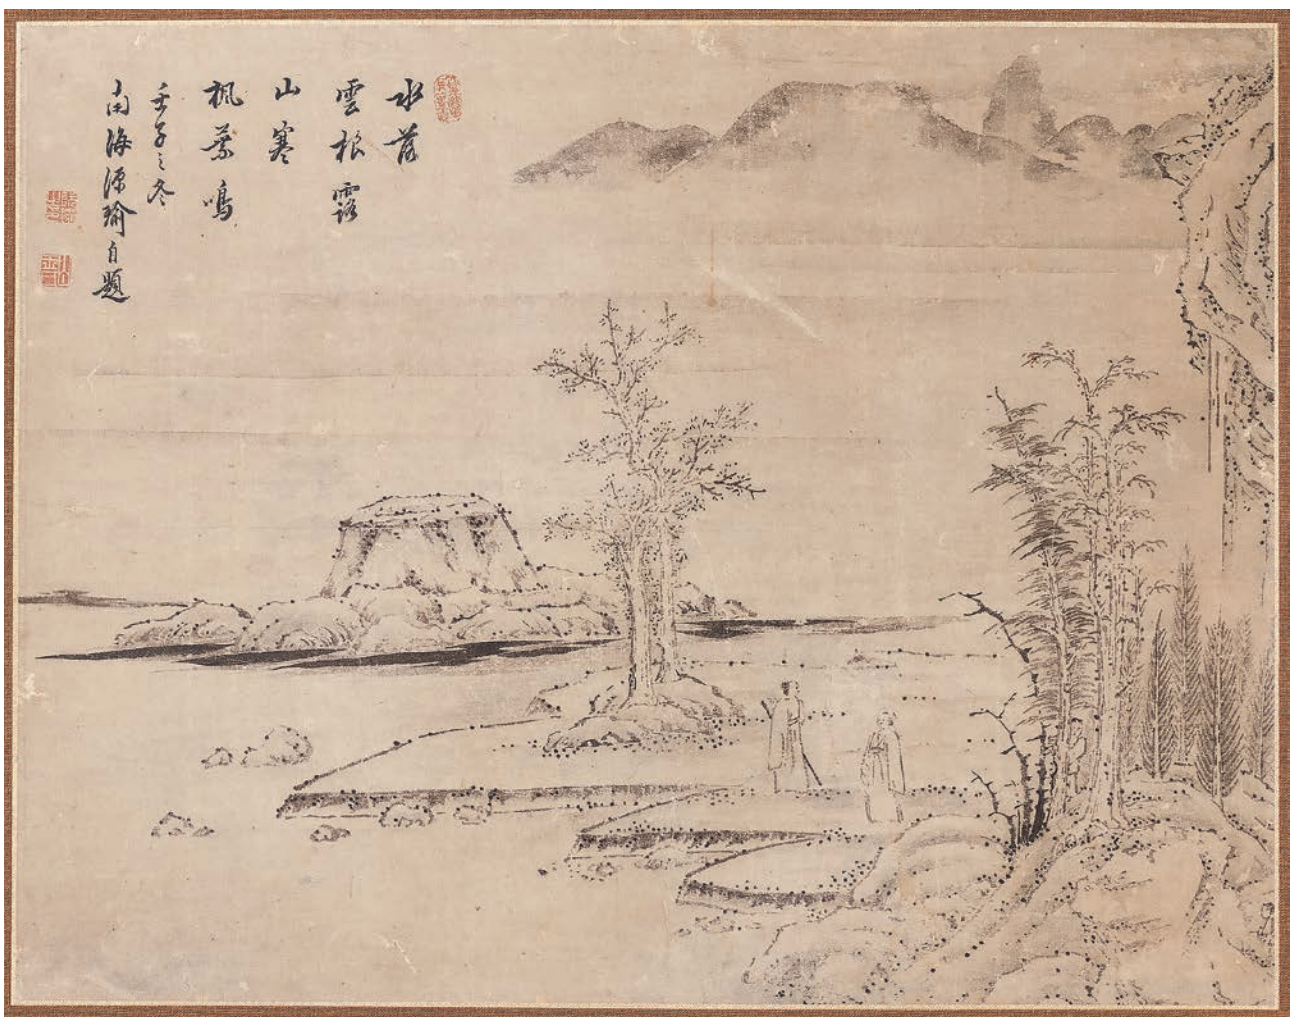 水落
雲根露
山寒
楓葉鳴
壬子之冬
南海源瑜自題